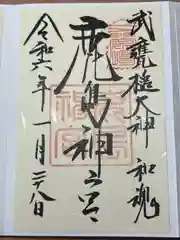 武甕槌大神 和魂
鹿島神宮
令和六年一月二十八日